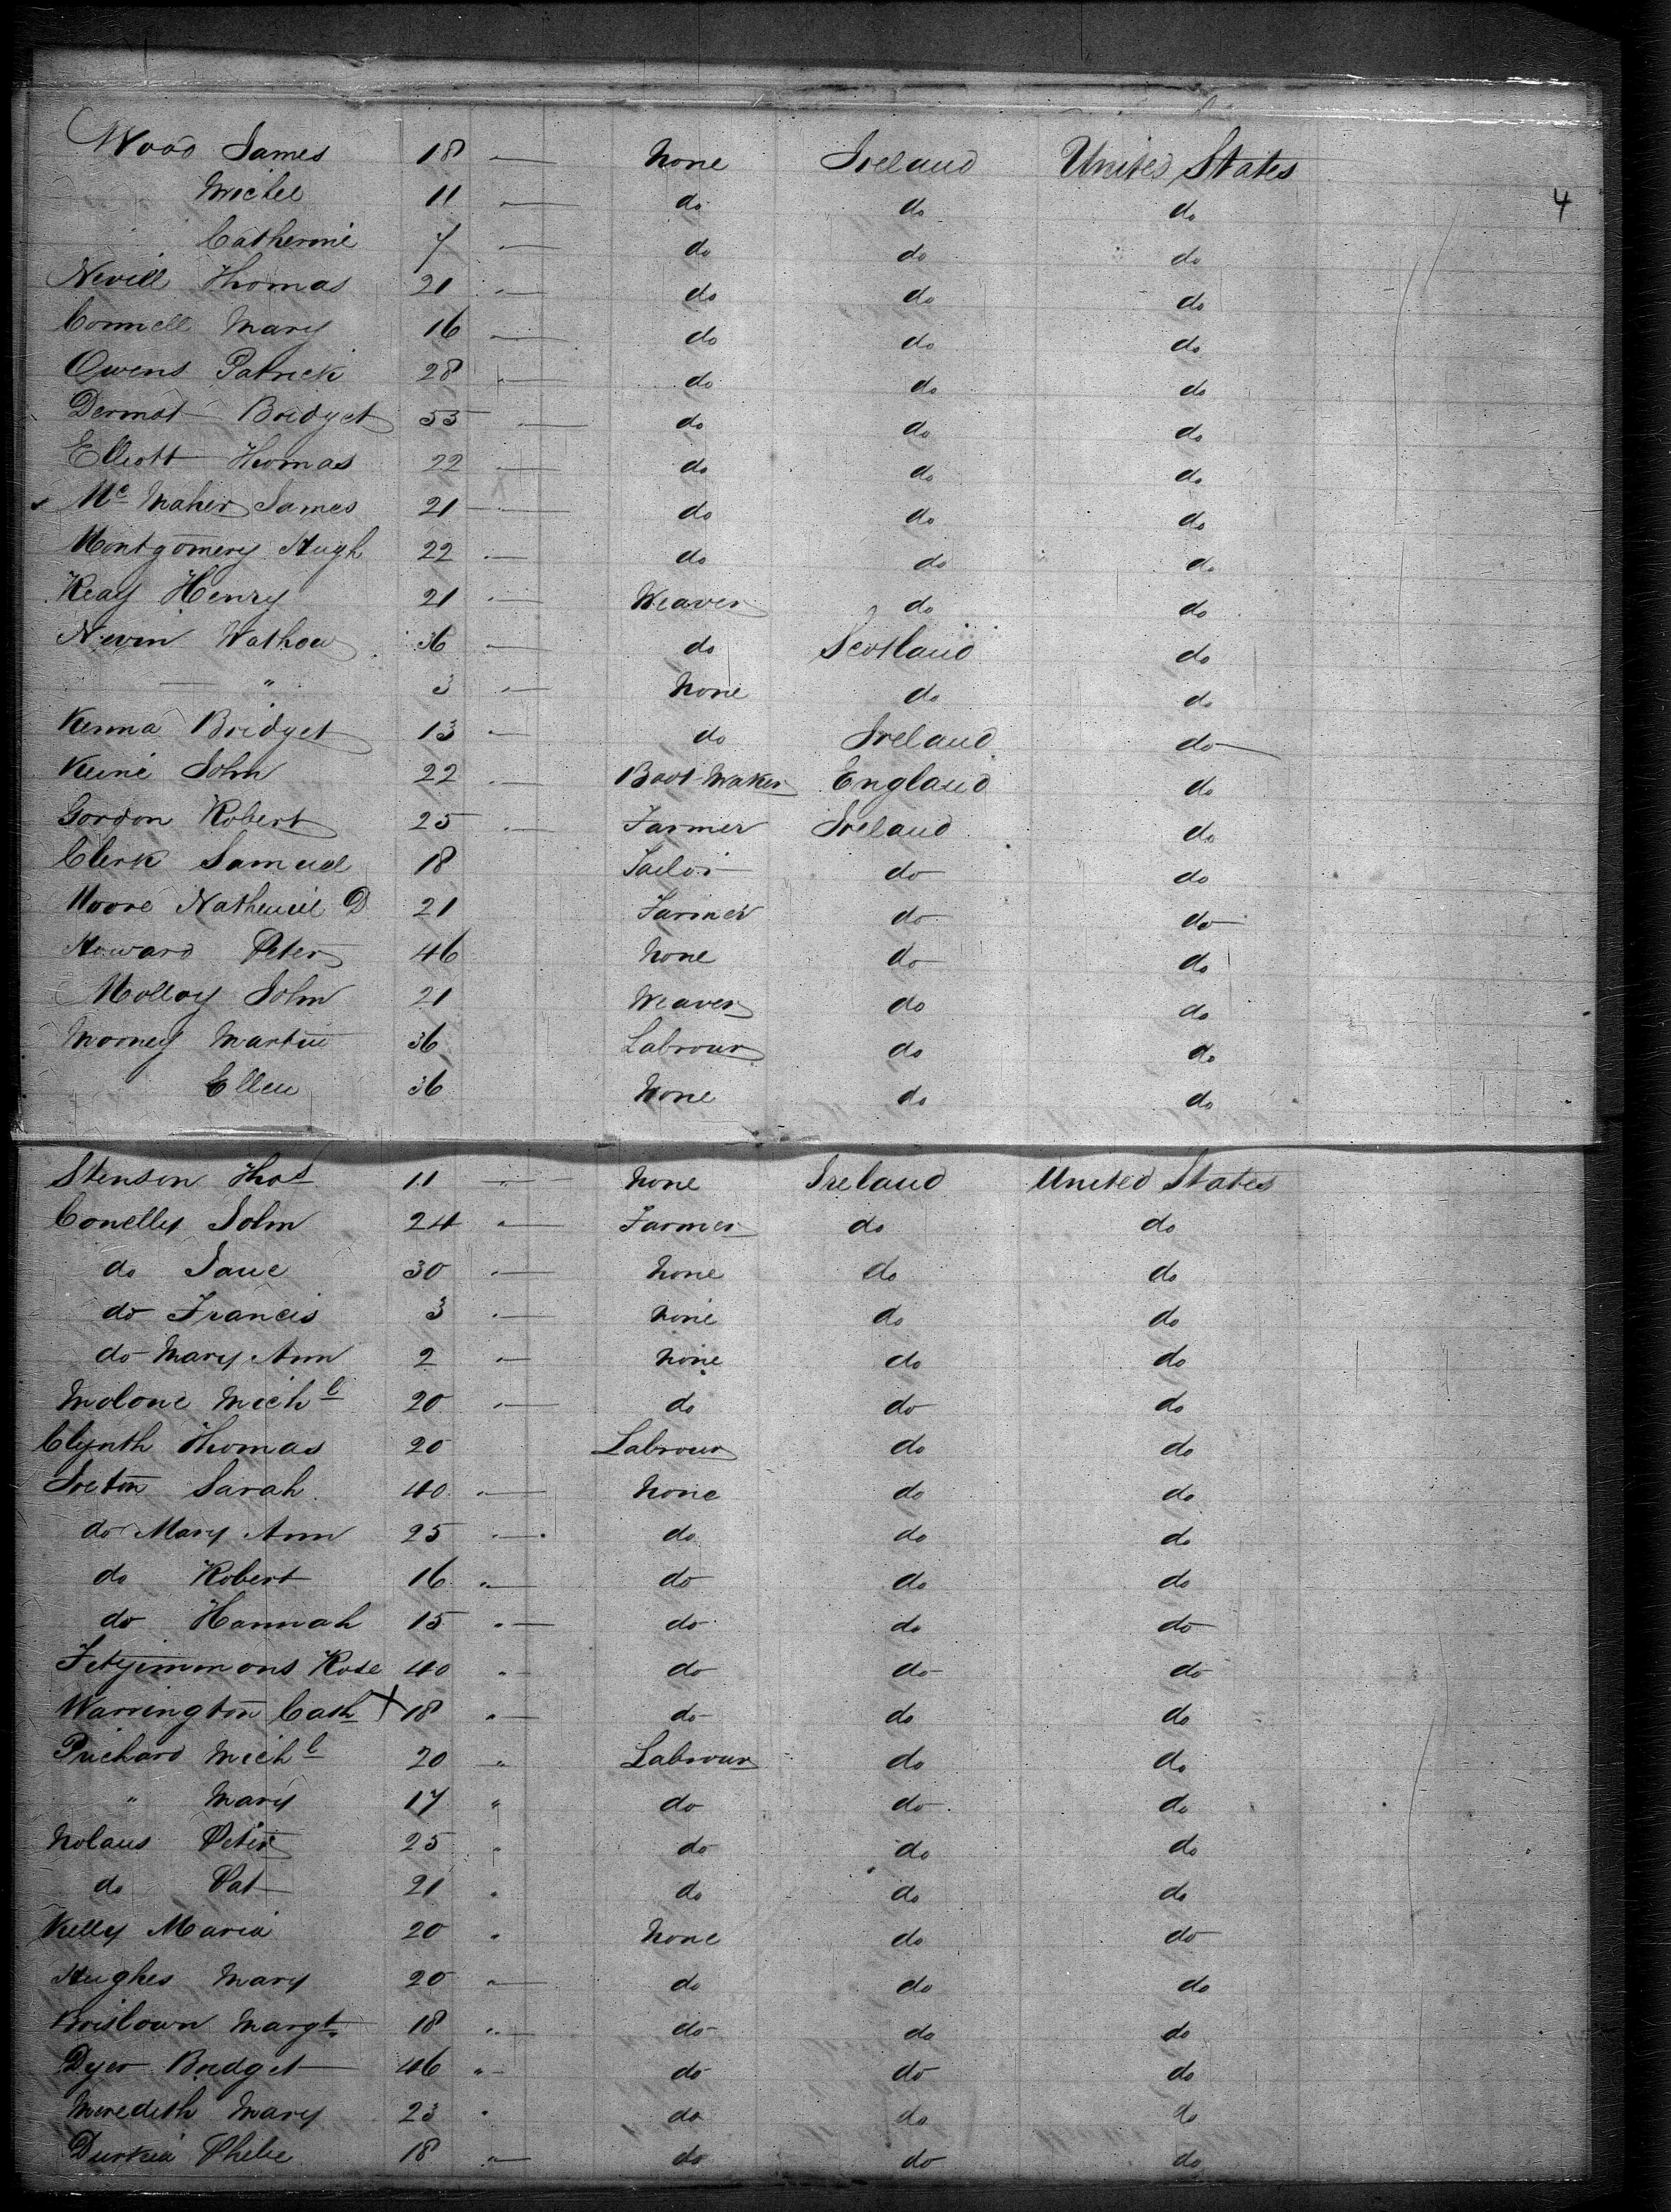 Wood James 18 — None Ireland United States
4
Michel 11 — do do do
Catherine 7 — do do do
Nevill Thomas 21 — do do do
Connell Mary 16 — do do do
Owens Patrick 28 — do do do
Dermot Bridget 55 — do do do
Elliott Thomas 22 — do do do
Mc Maher James 21 — do do do
Montgomery Hugh 22 — do do do
Keay Henry 21 — Weaver do do
Nevin 36 — do Scotland do
— " 3 — None do do
Kenna Bridget 13 — do Ireland do
John 22 — Boot Maker England do
Gordon Robert 25 — Farmer Ireland do
Clerk Samuel 18 Tailor do do
Moore D 21 Farmer do do
Howard Peter 46 None do do
Molloy John 21 Weaver do do
Mooney Martin 36 Labrour do do
Ellen 36 None do do
Stenson Thos 11 — None Ireland United States
Conelly John 24 — Farmer do do
do Jane 30 — None do do
do Francis 3 — None do do
do Mary Ann 2 — None do do
Malone Michl 20 — do do do
Clynth Thomas 20 Labrour do do
Sarah 40 — None do do
do Mary Ann 25 — do do do
do Robert 16 — do do do
do Hannah 15 — do do do
Fitzimmons Rose 40 — do do do
Warrington Cath X 18 — do do do
Prichard Michl 20 " Labrour do do
" Mary 17 " do do do
Nolans Peter 25 " do do do
do Pat 21 " do do do
Kelly Maria 20 " None do do
Hughes Mary 20 — do do do
Brislown Margt. 18 — do do do
Dyer Bridget 46 " do do do
Meredith Mary 23 " do do do
Phebe 18 — do do do